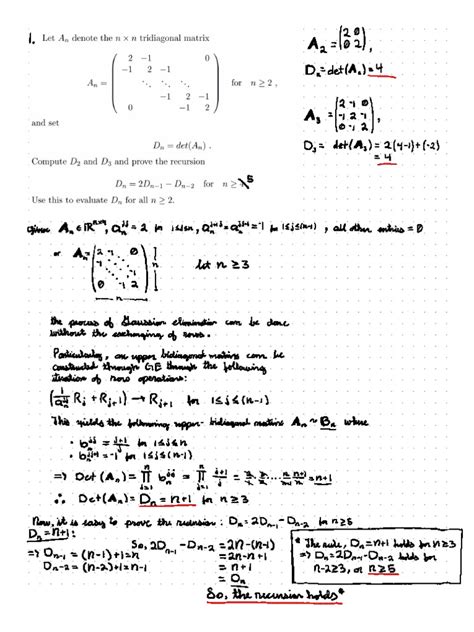 1. Let Aₙ denote the n × n tridiagonal matrix
Aₙ = ( 2 −1 0
−1 2 −1
⋱ ⋱ ⋱
−1 2 −1
0 −1 2 ) for n ≥ 2 ,
and set
Dₙ = det(Aₙ) .
Compute D₂ and D₃ and prove the recursion
Dₙ = 2Dₙ₋₁ − Dₙ₋₂ for n ≥ 5
Use this to evaluate Dₙ for all n ≥ 2.
A₂ = (2 0
0 2),
Dₙ = det(A₂) = 4
A₃ = (2 -1 0
-1 2 -1
0 -1 2),
D₃ = det(A₃) = 2(4-1)+(-2)
= 4
Given Aₙ ∈ ℝⁿˣⁿ, aₙʲʲ = 2 for 1≤j≤n, = -1 for 1≤j≤(n-1), all other entries = 0
or Aₙ = (2 -1 0
-1
-1
0 -1 2) n
n
let n ≥ 3
the process of Gaussian elimination can be done
without the exchanging of rows.
Particularly, an upper bidiagonal matrix can be
constructed through GE through the following
iteration of row operations:
Rⱼ + Rⱼ₊₁) → Rⱼ₊₁ for 1≤j≤(n-1)
This yields the following upper-bidiagonal matrix Aₙ ~ Bₙ where
• bₙʲʲ = (j+1)/j for 1≤j≤n
• bₙʲʲ⁺¹ = -1 for 1≤j≤(n-1)
⇒ Det(Aₙ) = ∏ⱼ₌₁ⁿ bₙʲʲ = ∏ⱼ₌₁ⁿ (j+1)/j = 2/1 · 3/2 ... (n+1)/n = n+1
∴ Det(Aₙ) = Dₙ = n+1 for n≥3
Now, it is easy to prove the recursion: Dₙ = 2Dₙ₋₁ - Dₙ₋₂ for n≥5
Dₙ = n+1:
⇒ Dₙ₋₁ = (n-1)+1 = n
Dₙ₋₂ = (n-2)+1 = n-1
So, 2Dₙ₋₁ - Dₙ₋₂ = 2n-(n-1)
= 2n-n+1
= n+1
= Dₙ
So, the recursion holds*
* The rule, Dₙ = n+1 holds for n≥3
⇒ Dₙ = 2Dₙ₋₁ - Dₙ₋₂ holds for
n-2≥3, or n≥5